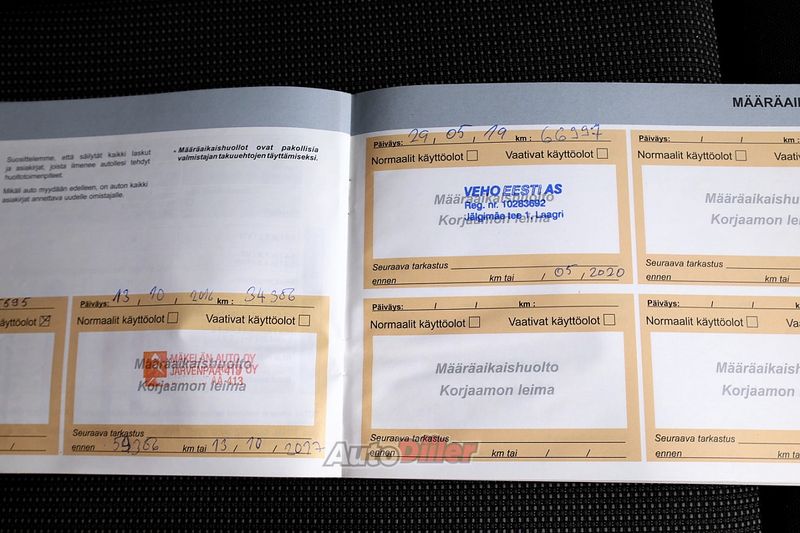 MÄÄRÄAI
Suosittelemme, että säilytät kaikki laskut
ja asiakirjat, joista ilmenee autollesi tehdyt
huoltotoimenpiteet.
Mikäli auto myydään edelleen, on auton kaikki
asiakirjat annettava uudelle omistajalle.
• Määräaikaishuollot ovat pakollisia
valmistajan takuuehtojen täyttämiseksi.
595
äyttöolot
Päiväys: 13, 10, 2016 km: 34386
Normaalit käyttöolot Vaativat käyttöolot
Määräaikaishuolto
Korjaamon leima
MÄKELÄN AUTO OY
JÄRVENPÄÄ
AA-413
Seuraava tarkastus
ennen 59386 km tai 13, 10, 2017
Päiväys: 29, 05, 19 km: 66997
Normaalit käyttöolot Vaativat käyttöolot
VEHO EESTI AS
Reg. nr. 10283692
Jälgimäe tee 1, Laagri
Määräaikaishuolto
Korjaamon leima
Seuraava tarkastus
ennen km tai , 05, 2020
Päiväys: / / km:
Normaalit käyttöolot Vaativat käyttöolot
Määräaikaishuolto
Korjaamon leima
Seuraava tarkastus
ennen km tai / /
Päiväys: / /
Normaalit käyttöolot
Määräaikaishuolto
Korjaamon leima
Seuraava tarkastus
ennen km
Päiväys: / /
Normaalit käyttöolot
Määräaikaishuolto
Korjaamon leima
Seuraava tarkastus
ennen km
AutoDiller